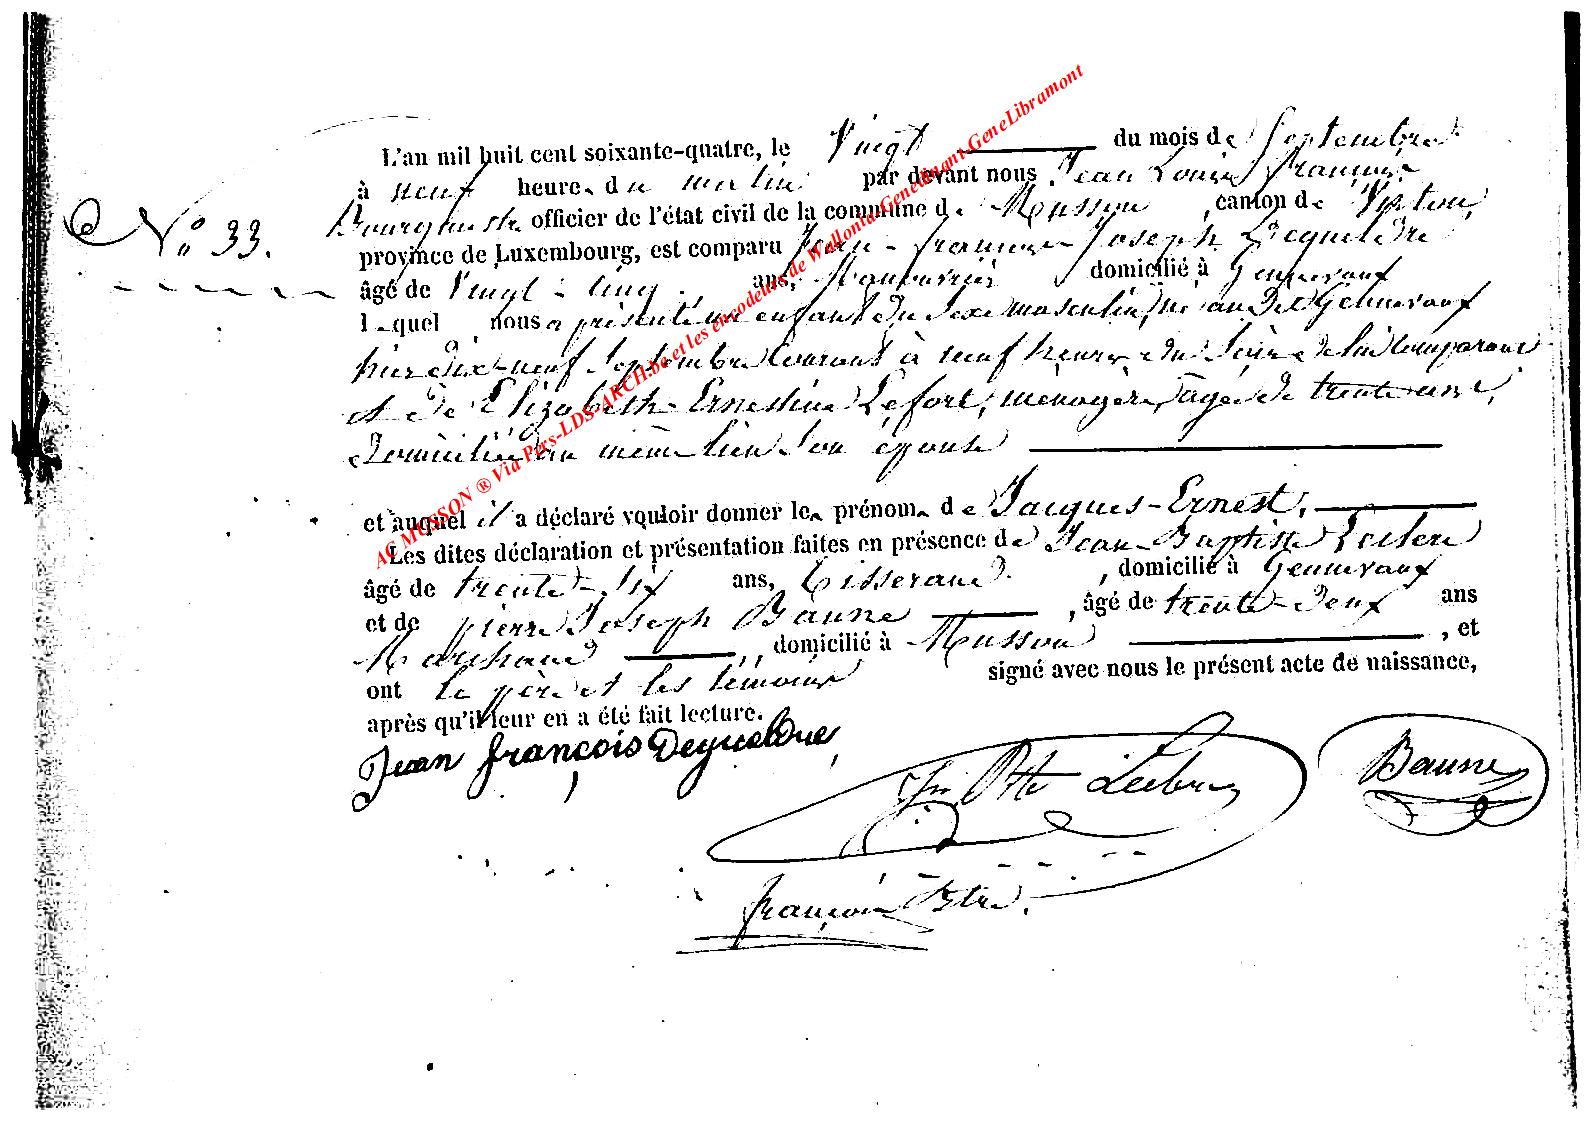 L'an mil huit cent soixante-quatre, le Vingt du mois de Septembre
à neuf heure. du matin par devant nous Jean Louis François
N° 33. Bourgmestre officier de l'état civil de la commune de Musson, canton de Virton,
province de Luxembourg, est comparu Jean-François-Joseph Dequeldre
âgé de Vingt-cinq ans, Manouvrier domicilié à Gennevaux
lequel nous a présenté un enfant du sexe masculin, né au dit Gennevaux
hier dix-neuf Septembre courant à neuf heures du soir de lui comparant
et de Elizabeth-Ernestine Lefort, ménagère, âgée de trente ans,
domiciliée au même lieu son épouse
et auquel il a déclaré vouloir donner les prénoms de Jacques-Ernest.
Les dites déclaration et présentation faites en présence de Jean-Baptiste Leclere
âgé de trente-six ans, Tisserand, domicilié à Gennevaux
et de pierre Joseph Baune, âgé de trente-deux ans
Marchand, domicilié à Musson, et
ont le père et les témoins signé avec nous le présent acte de naissance,
après qu'il leur en a été fait lecture.
Jean françois Dequeldre
Baune
françois
AC MUSSON ® Via Pers-LDS-ARCH.be et les encodeurs de Wallonia-Genedinant-GeneLibramont